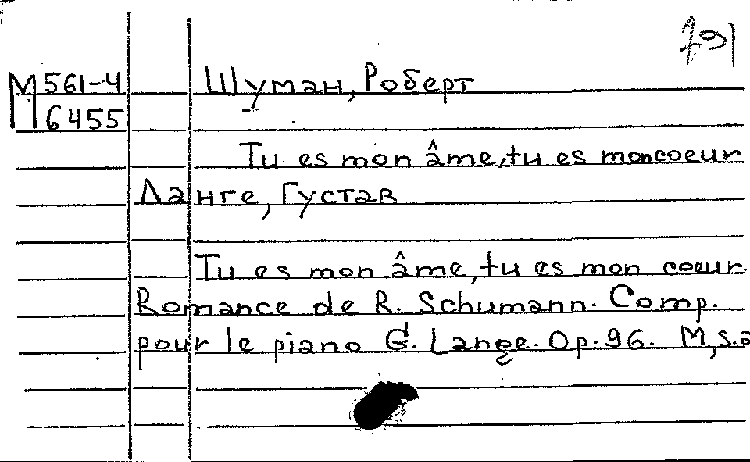 791
М 561-4
6455
Шуман, Роберт
Tu es mon âme, tu es mon coeur
Ланге, Густав
Tu es mon âme, tu es mon coeur
Romance de R. Schumann. Comp.
pour le piano G. Lange. Op. 96. М, s.a